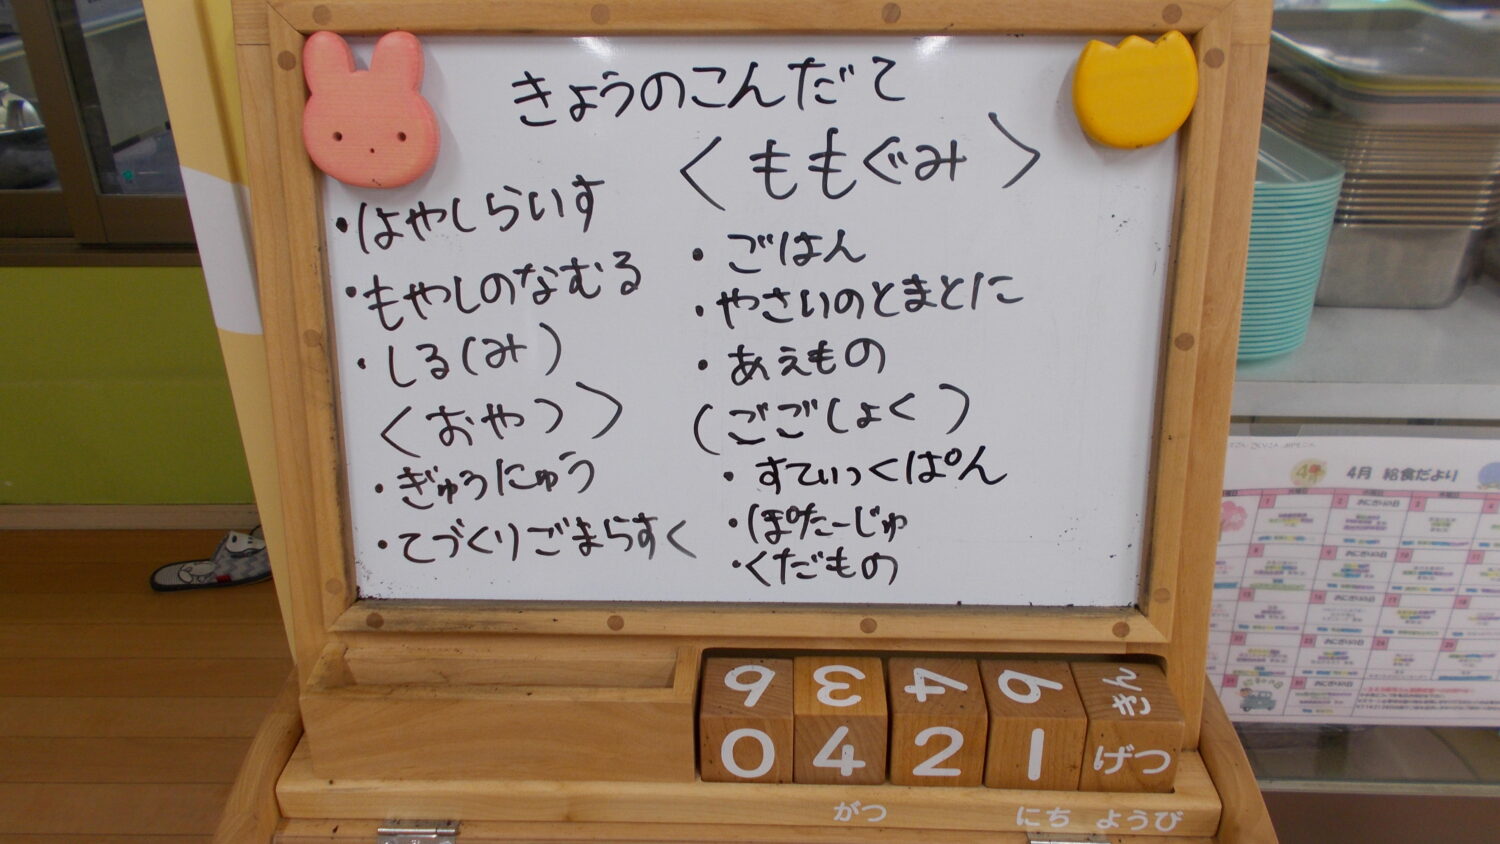 きょうのこんだて
・はやしらいす
・もやしのなむる
・しる(み)
〈おやつ〉
・ぎゅうにゅう
・てづくりごまらすく
〈ももぐみ〉
・ごはん
・やさいのとまとに
・あえもの
(ごごしょく)
・すてぃっくぱん
・ぽたーじゅ
・くだもの
6 3 4 6 きん
0 4 2 1 げつ
がつ にち ようび
4月 給食だより